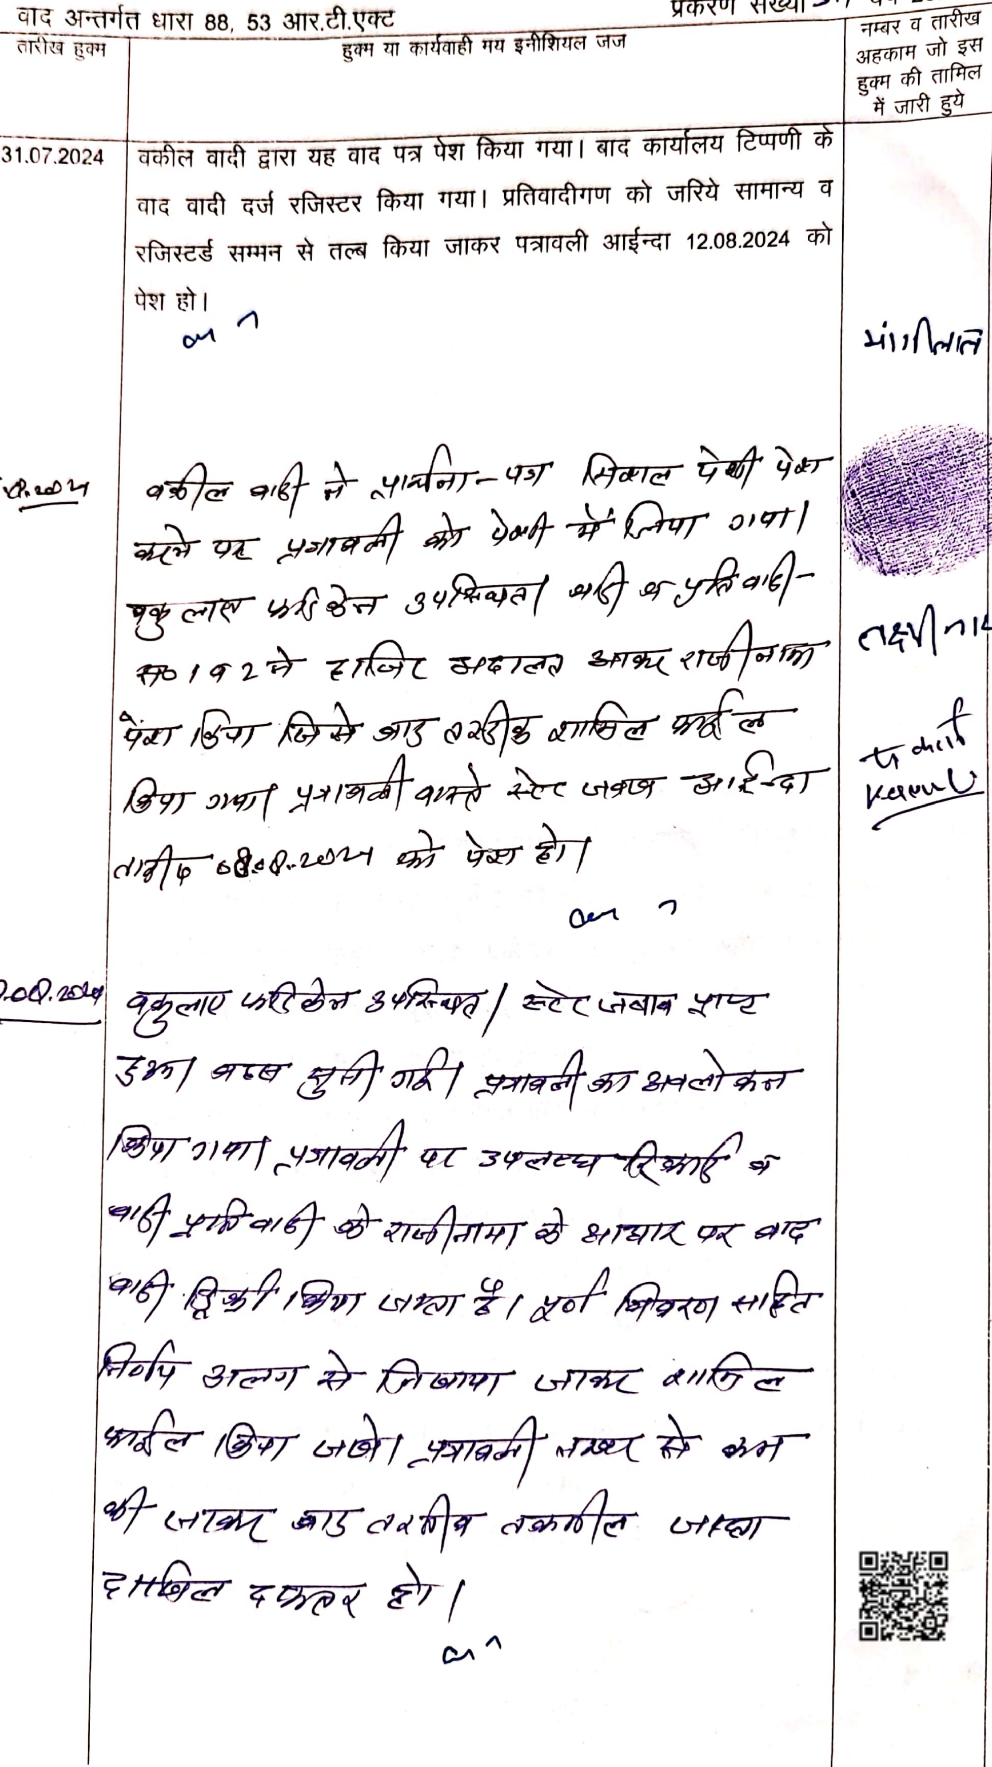 वाद अन्तर्गत धारा 88, 53 आर.टी.एक्ट
प्रकरण संख्या
तारीख हुक्म
हुक्म या कार्यवाही मय इनीशियल जज
नम्बर व तारीख
अहकाम जो इस
हुक्म की तामिल
में जारी हुये
31.07.2024
वकील वादी द्वारा यह वाद पत्र पेश किया गया। बाद कार्यालय टिप्पणी के
वाद वादी दर्ज रजिस्टर किया गया। प्रतिवादीगण को जरिये सामान्य व
रजिस्टर्ड सम्मन से तल्ब किया जाकर पत्रावली आईन्दा 12.08.2024 को
पेश हो।
मांगीलाल
वकील वादी ने प्रार्थना-पत्र पेशी पेश
करने पर पत्रावली को पेशी में लिया गया।
वकुलाए फरिकेन उपस्थित। वादी व प्रतिवादी-
स० 1 व 2 ने हाजिर अदालत आकर राजीनामा
पेश किया जिसे बाद तस्दीक शामिल फाईल
किया गया। पत्रावली वास्ते स्टेट जवाब आईन्दा
तारीख को पेश हो।
वकुलाए फरिकेन उपस्थित। स्टेट जबाव प्राप्त
हुआ। बहस सुनी गई। पत्रावली का अवलोकन
किया गया। पत्रावली पर उपलब्ध रिकार्ड व
वादी प्रतिवादी के राजीनामा के आधार पर वाद
वादी डिक्री किया जाता है। पूर्ण विवरण सहित
निर्णय अलग से लिखाया जाकर शामिल
फाईल किया जावे। पत्रावली नम्बर से कम
की जाकर बाद तरतीब तकमील जाब्ता
दाखिल दफ्तर हो।